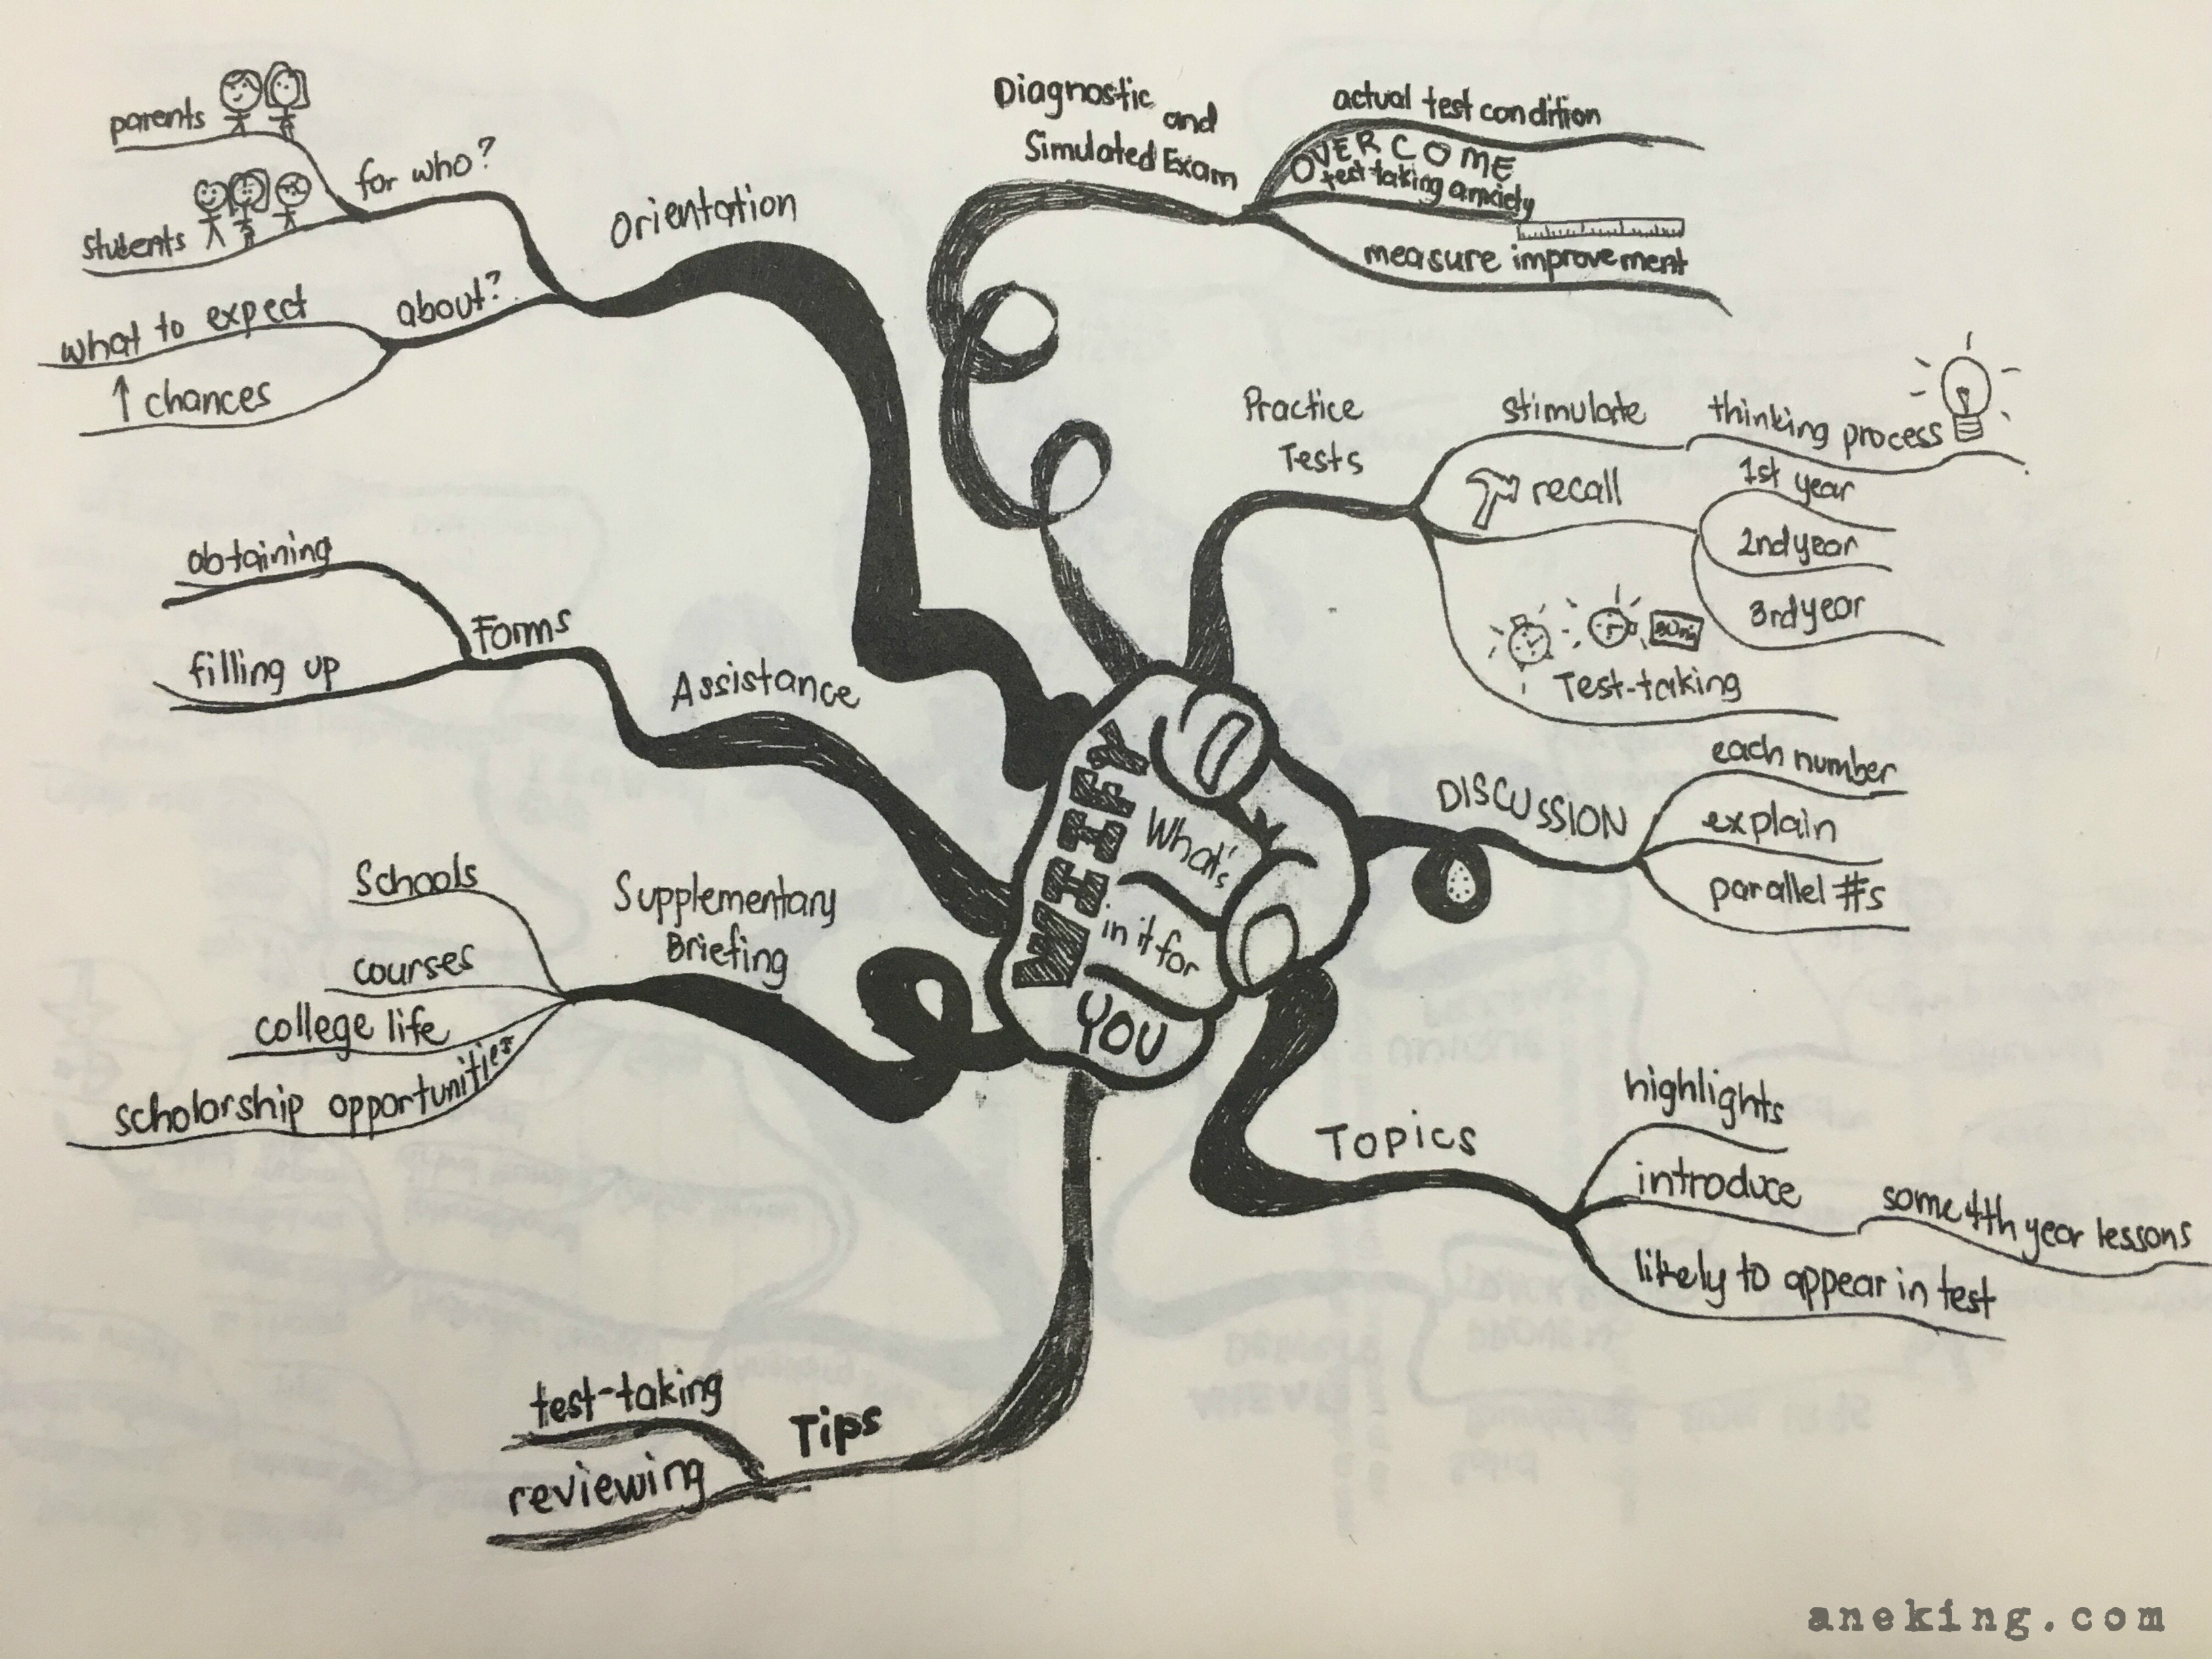 WIIFY
What's
in it for
YOU
Diagnostic and
Simulated Exam
actual test condition
OVERCOME
test taking anxiety
measure improvement
Practice
Tests
stimulate
thinking process
recall
1st year
2nd year
3rd year
30min
Test-taking
DISCUSSION
each number
explain
parallel #s
TOPICS
highlights
introduce
some 4th year lessons
likely to appear in test
Tips
test-taking
reviewing
Supplementary
Briefing
Schools
courses
college life
scholarship opportunities
Assistance
Forms
obtaining
filling up
Orientation
for who?
parents
students
about?
what to expect
↑ chances
aneking.com